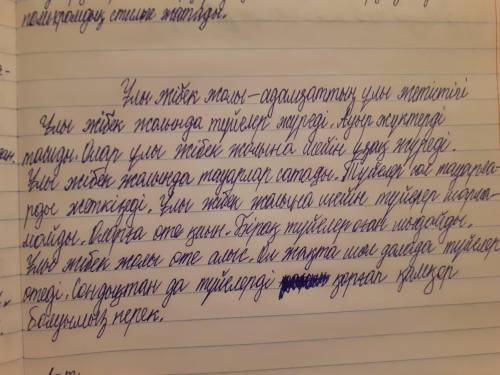 полихромдық стильге жатады.
Ұлы жібек жолы – адамзаттың ұлы жетістігі
Ұлы жібек жолында түйелер жүреді. Ауыр жүктерді
тасиды. Олар ұлы жібек жолына шейін ұзақ жүреді.
Ұлы жібек жолында тауарлар сатады. Түйелер көп тауарла-
рды жеткізеді. Ұлы жібек жолына шейін түйелер шарша-
майды. Оларға өте қиын. Бірақ түйелер оған шыдайды.
Ұлы жібек жолы өте алыс. Ол жақта шөл далада түйелер
өтеді. Сондықтан да түйелерді қорғап қамқор
болуымыз керек.